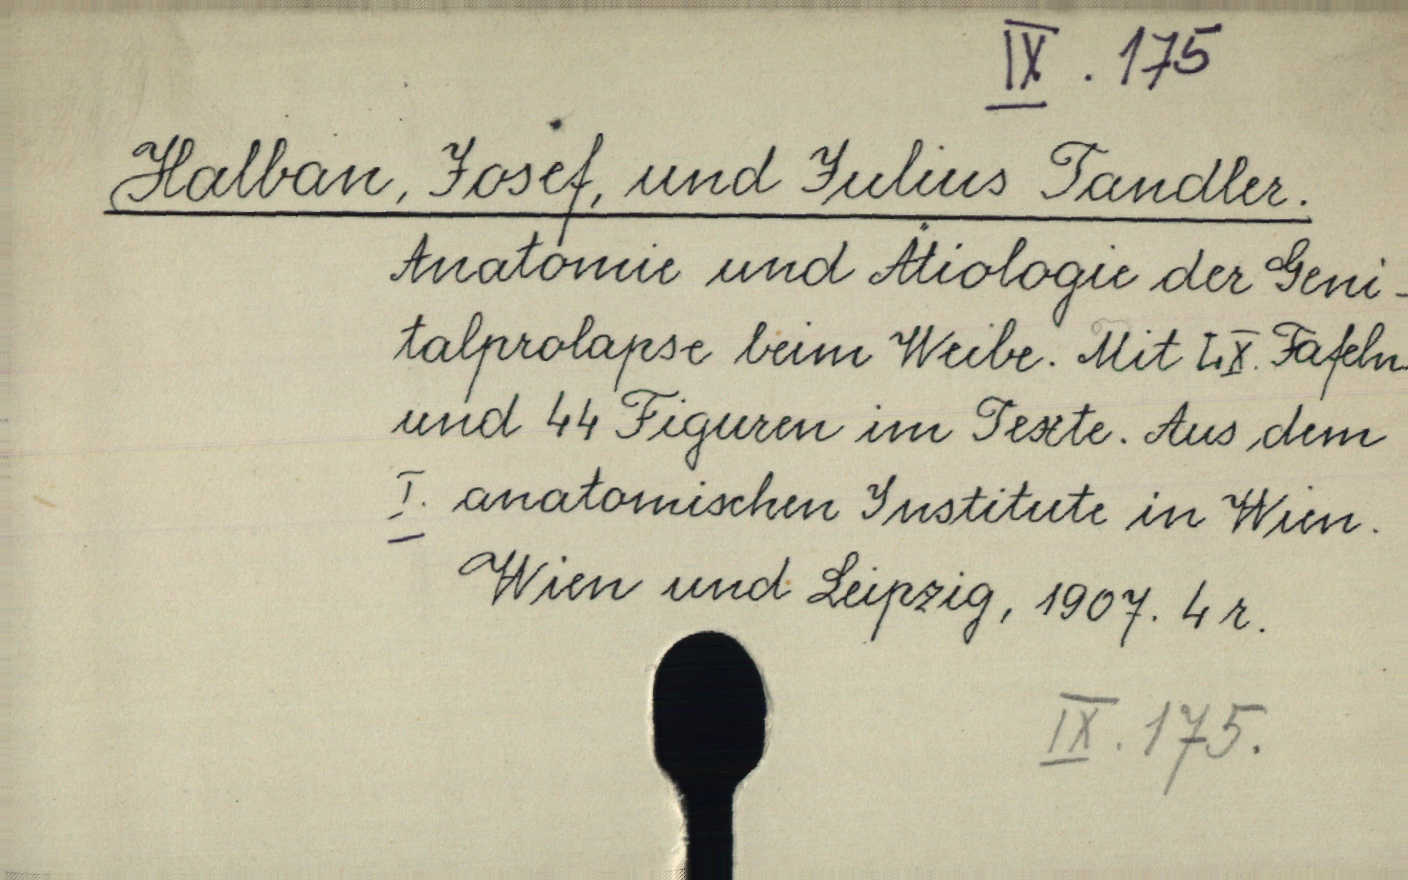 IX. 175
Halban, Josef, und Julius Tandler.
Anatomie und Ätiologie der Geni-
talprolapse beim Weibe. Mit LX. Tafeln
und 44 Figuren im Texte. Aus dem
I. anatomischen Institute in Wien.
Wien und Leipzig, 1907. 4 r.
IX. 175.